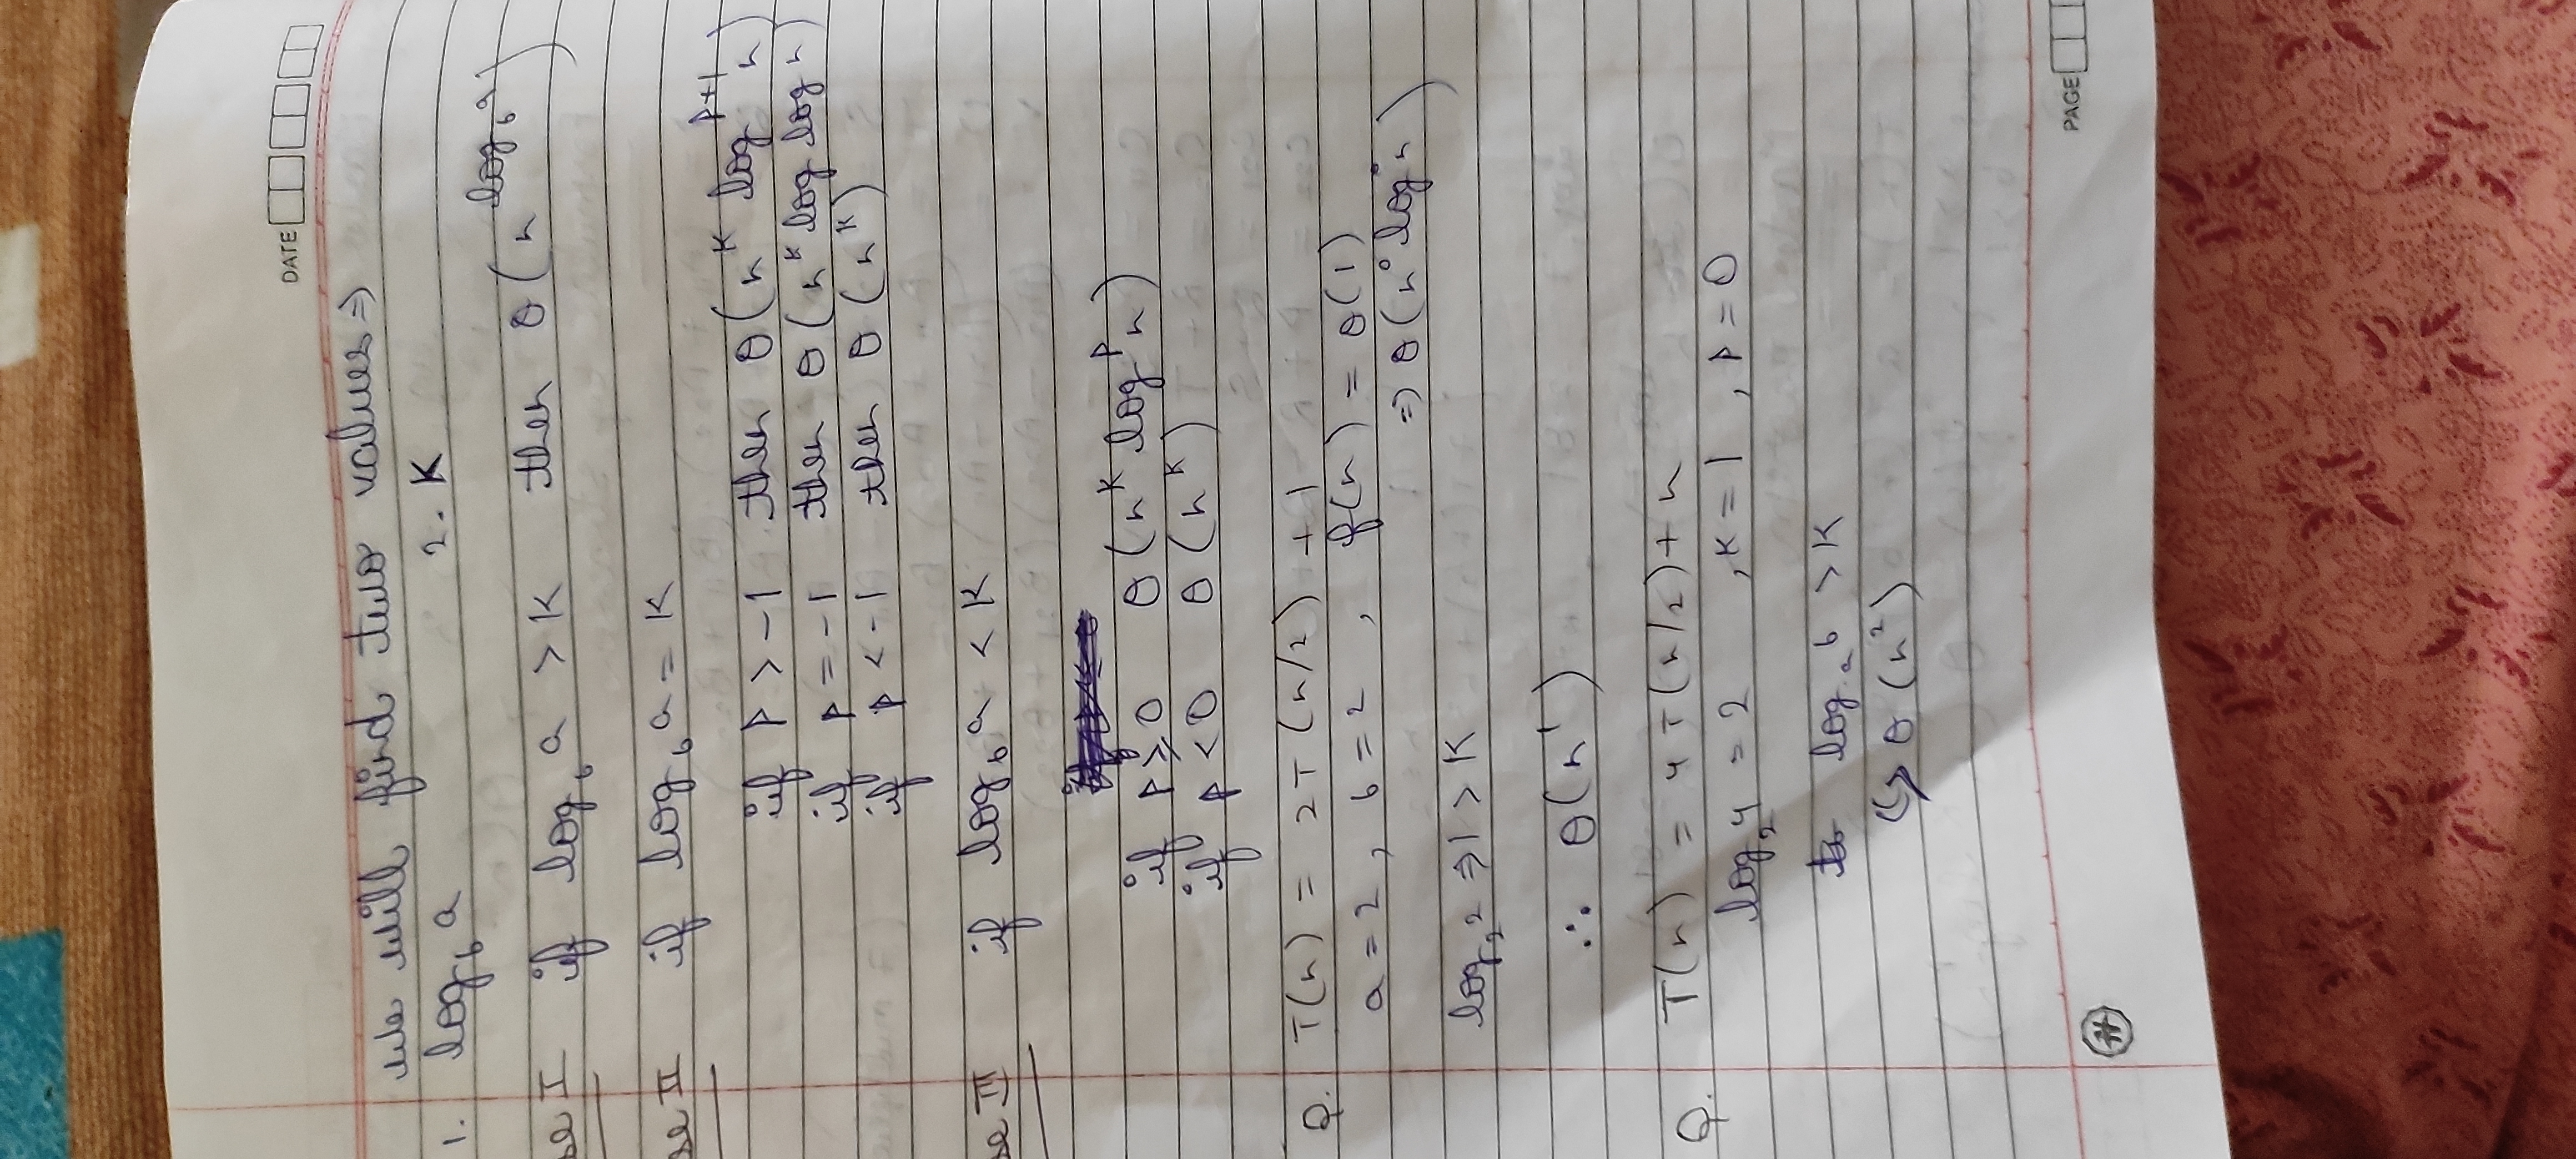 DATE
We will find two values ⇒
1. log_b a 2. K
se I if log_b a > K then θ(n^(log_b a))
se II if log_b a = K
if P > -1 then θ(n^K log^(P+1) n)
if P = -1 then θ(n^K log log n)
if P < -1 then θ(n^K)
se III if log_b a < K
if P ≥ 0 θ(n^K log^P n)
if P < 0 θ(n^K)
Q. T(n) = 2T(n/2) + 1
a = 2, b = 2, f(n) = θ(1)
⇒ θ(n^0 log^0 n)
log_2 2 ⇒ 1 > K
∴ θ(n^1)
Q. T(n) = 4T(n/2) + n
log_2 4 = 2 , K = 1 , P = 0
log_a b > K
↳ θ(n^2)
PAGE